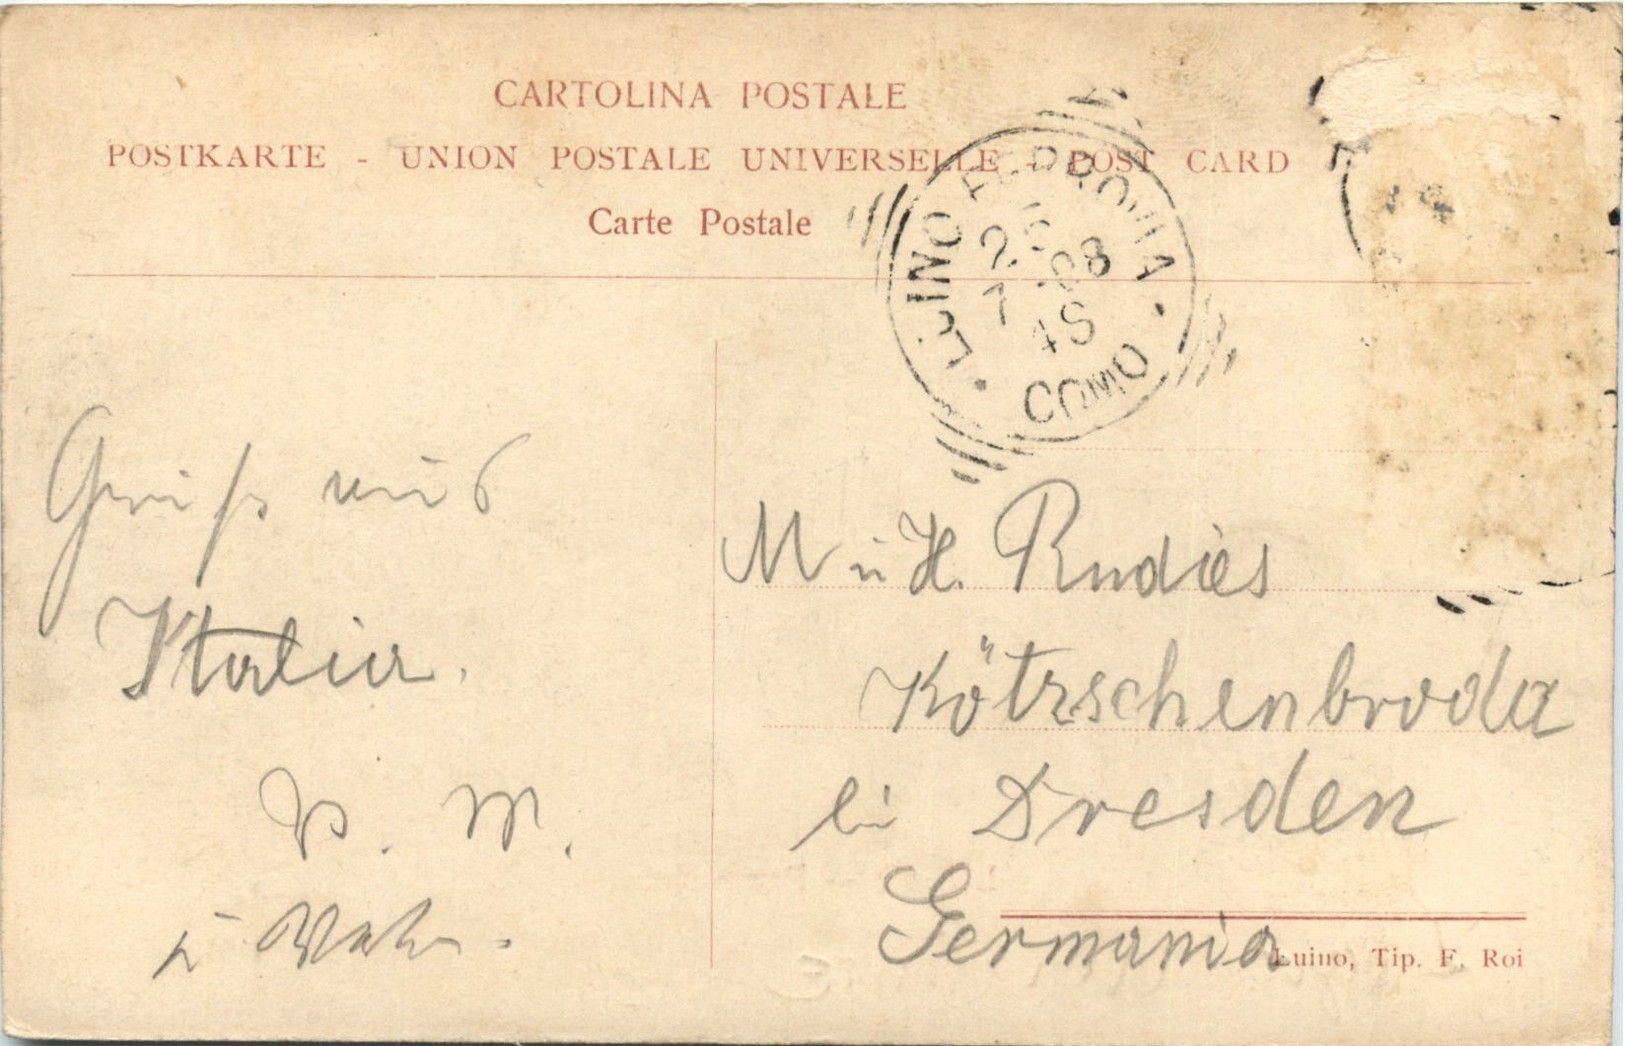 CARTOLINA POSTALE
POSTKARTE - UNION POSTALE UNIVERSELLE - POST CARD
Carte Postale
LUINO FERROVIA
COMO
Gruß aus
Italia.
M u H. Rudies
Kötzschenbroda
bei Dresden
Germania
Luino, Tip. F. Roi